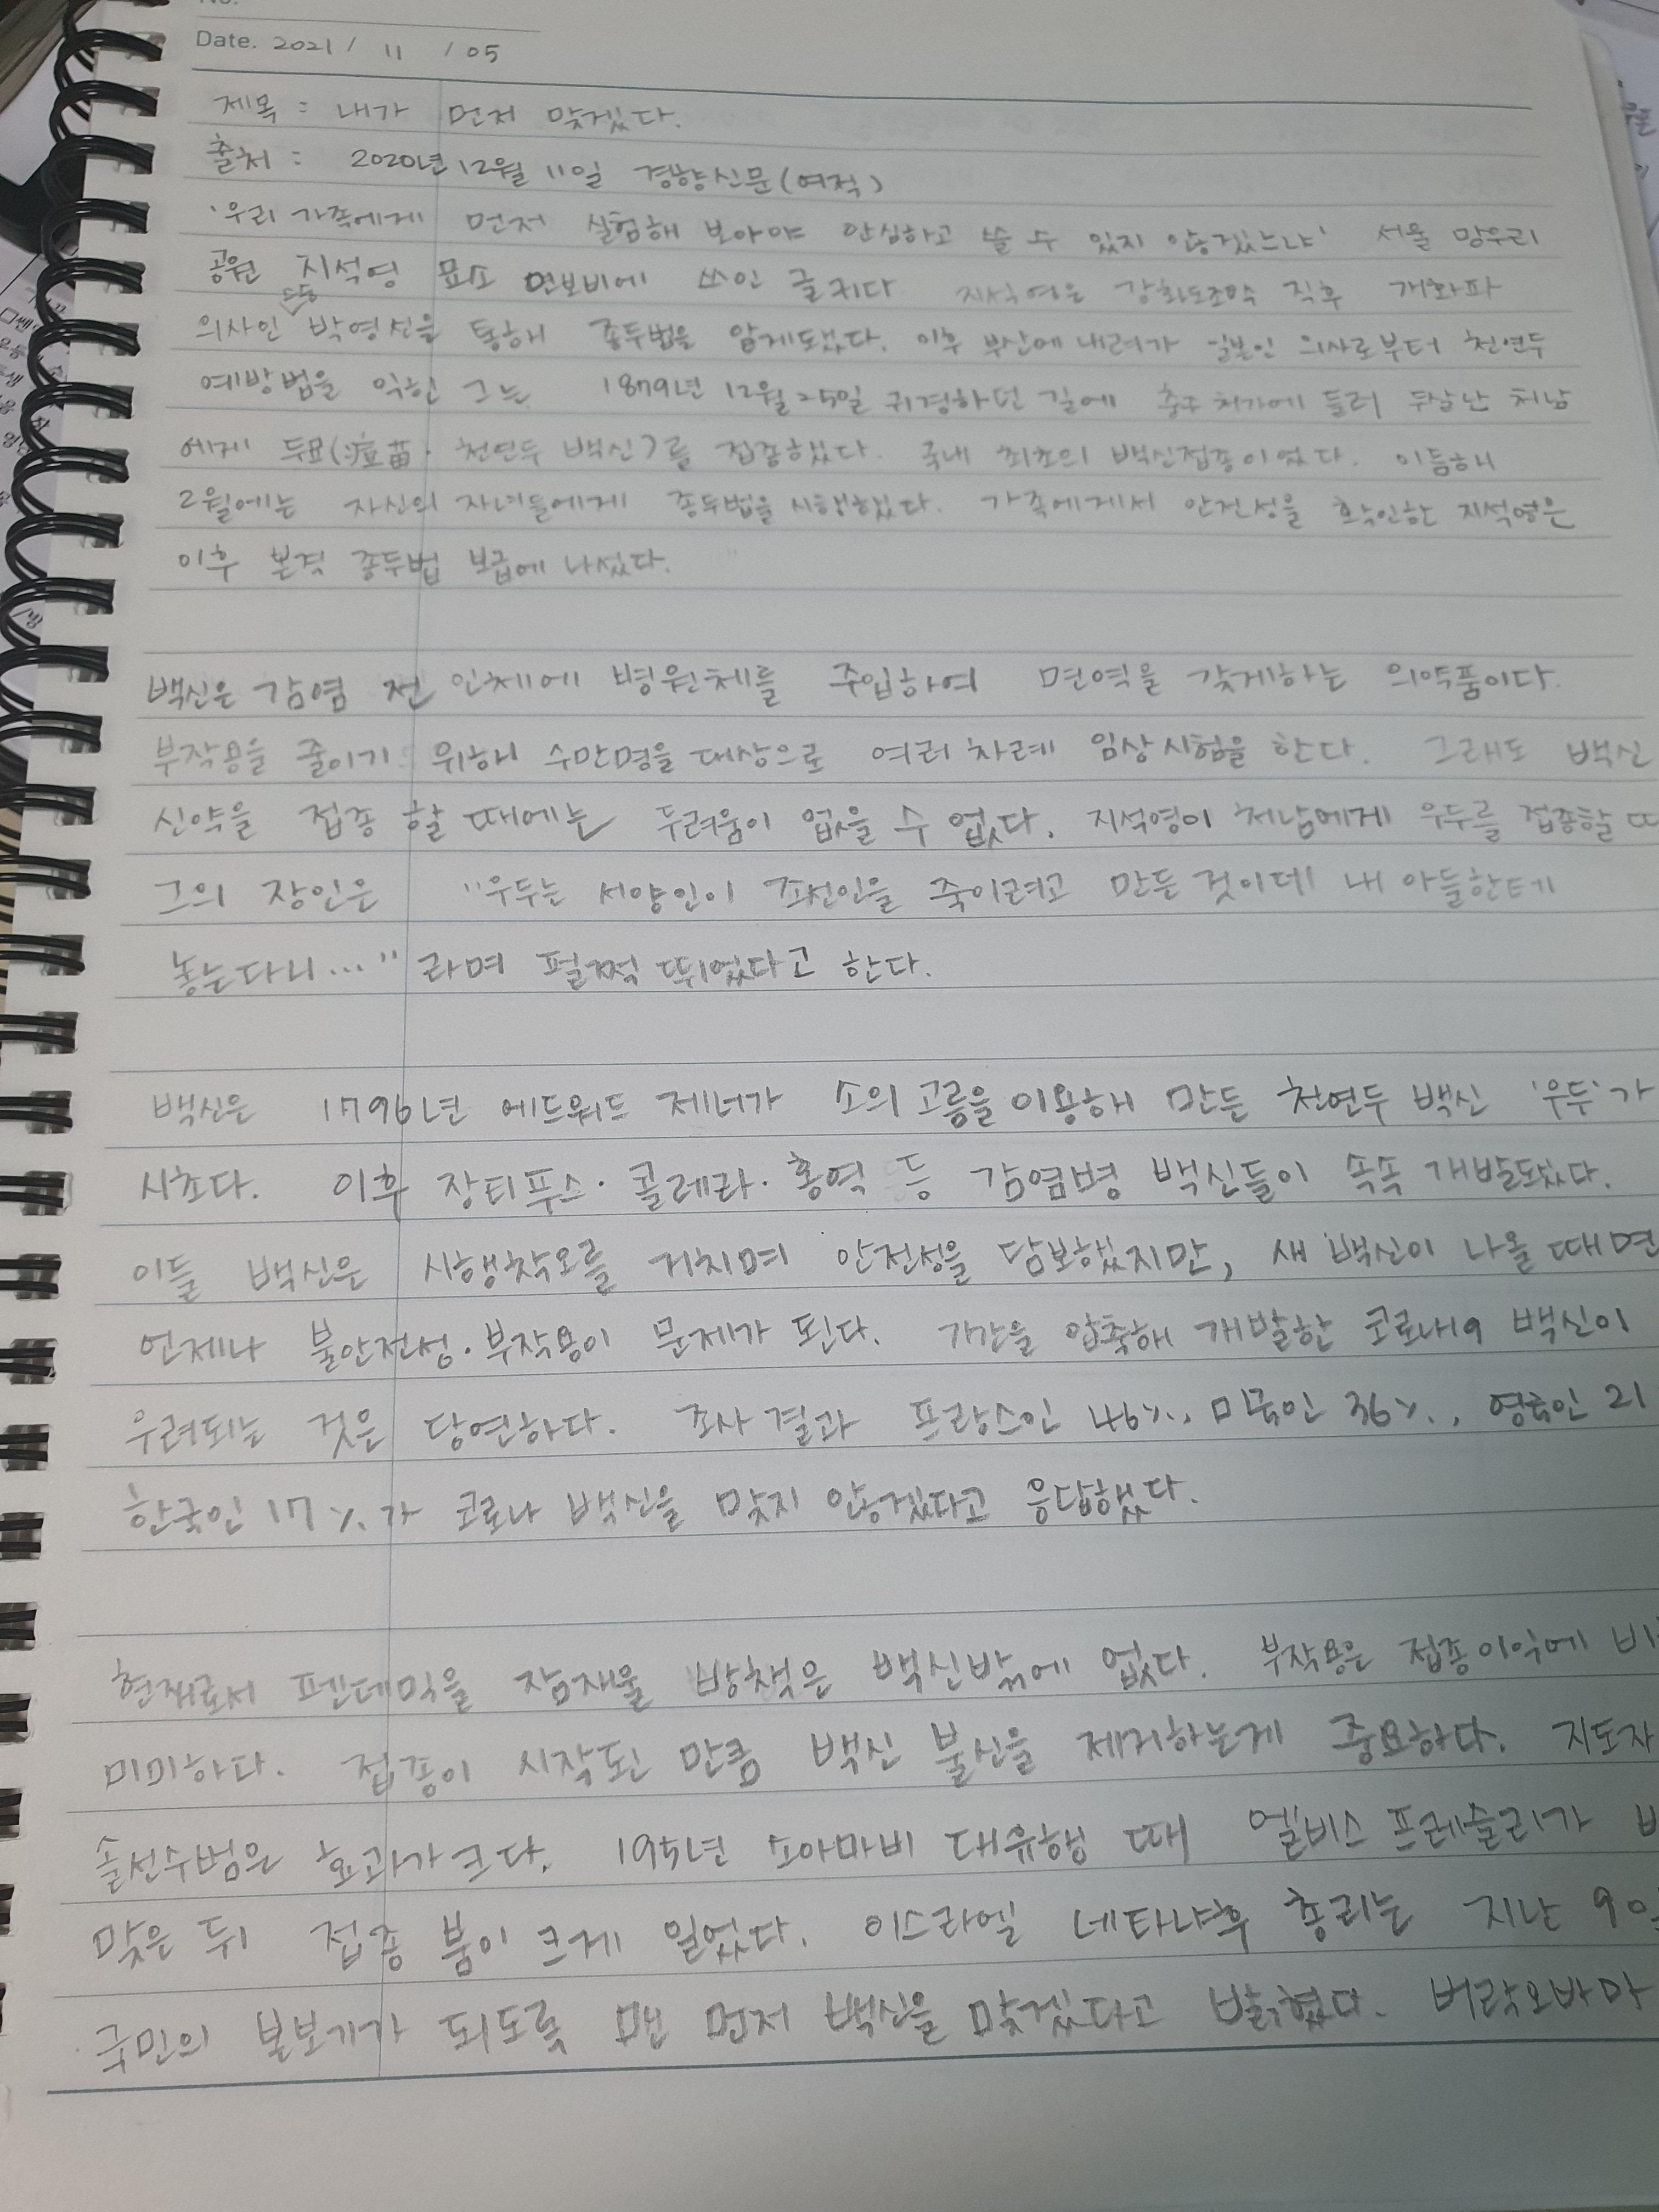 Date. 2021 / 11 / 05
제목 : 내가 먼저 맞겠다.
출처 : 2020년 12월 11일 경향신문(여적)
'우리 가족에게 먼저 실험해 보아야 안심하고 쓸 수 있지 않겠느냐' 서울 망우리
공원 지석영 묘소 연보비에 쓰인 글귀다 지석영은 강화도조약 직후 개화파
의사인 박영선을 통해 종두법을 알게됐다. 이후 부산에 내려가 일본인 의사로부터 천연두
예방법을 익힌 그는 1879년 12월 25일 귀경하던 길에 충주 처가에 들러 두살난 처남
에게 두묘(痘苗· 천연두 백신)를 접종했다. 국내 최초의 백신접종이었다. 이듬해
2월에는 자신의 자녀들에게 종두법을 시행했다. 가족에게서 안전성을 확인한 지석영은
이후 본격 종두법 보급에 나섰다.
백신은 감염 전 인체에 병원체를 주입하여 면역을 갖게하는 의약품이다.
부작용을 줄이기 위해 수만명을 대상으로 여러 차례 임상시험을 한다. 그래도 백신
신약을 접종 할 때에는 두려움이 없을 수 없다. 지석영이 처남에게 우두를 접종할 때
그의 장인은 "우두는 서양인이 조선인을 죽이려고 만든 것이데 내 아들한테
놓는다니..." 라며 펄쩍 뛰었다고 한다.
백신은 1796년 에드워드 제너가 소의 고름을 이용해 만든 천연두 백신 '우두'가
시초다. 이후 장티푸스· 콜레라· 홍역 등 감염병 백신들이 속속 개발됐다.
이들 백신은 시행착오를 거치며 안전성을 담보했지만, 새 백신이 나올 때면
언제나 불안전성·부작용이 문제가 된다. 기간을 압축해 개발한 코로나19 백신이
우려되는 것은 당연하다. 조사 결과 프랑스인 46%, 미국인 36%, 영국인 21
한국인 17%가 코로나 백신을 맞지 않겠다고 응답했다.
현재로서 펜데믹을 잠재울 방책은 백신밖에 없다. 부작용은 접종이익에 비
미미하다. 접종이 시작된 만큼 백신 불신을 제거하는게 중요하다. 지도자
솔선수범은 효과가 크다. 195년 소아마비 대유행 때 엘비스 프레슬리가
맞은 뒤 접종 붐이 크게 일었다. 이스라엘 네타냐후 총리는 지난 9일
국민의 본보기가 되도록 맨 먼저 백신을 맞겠다고 밝혔다. 버락오바마